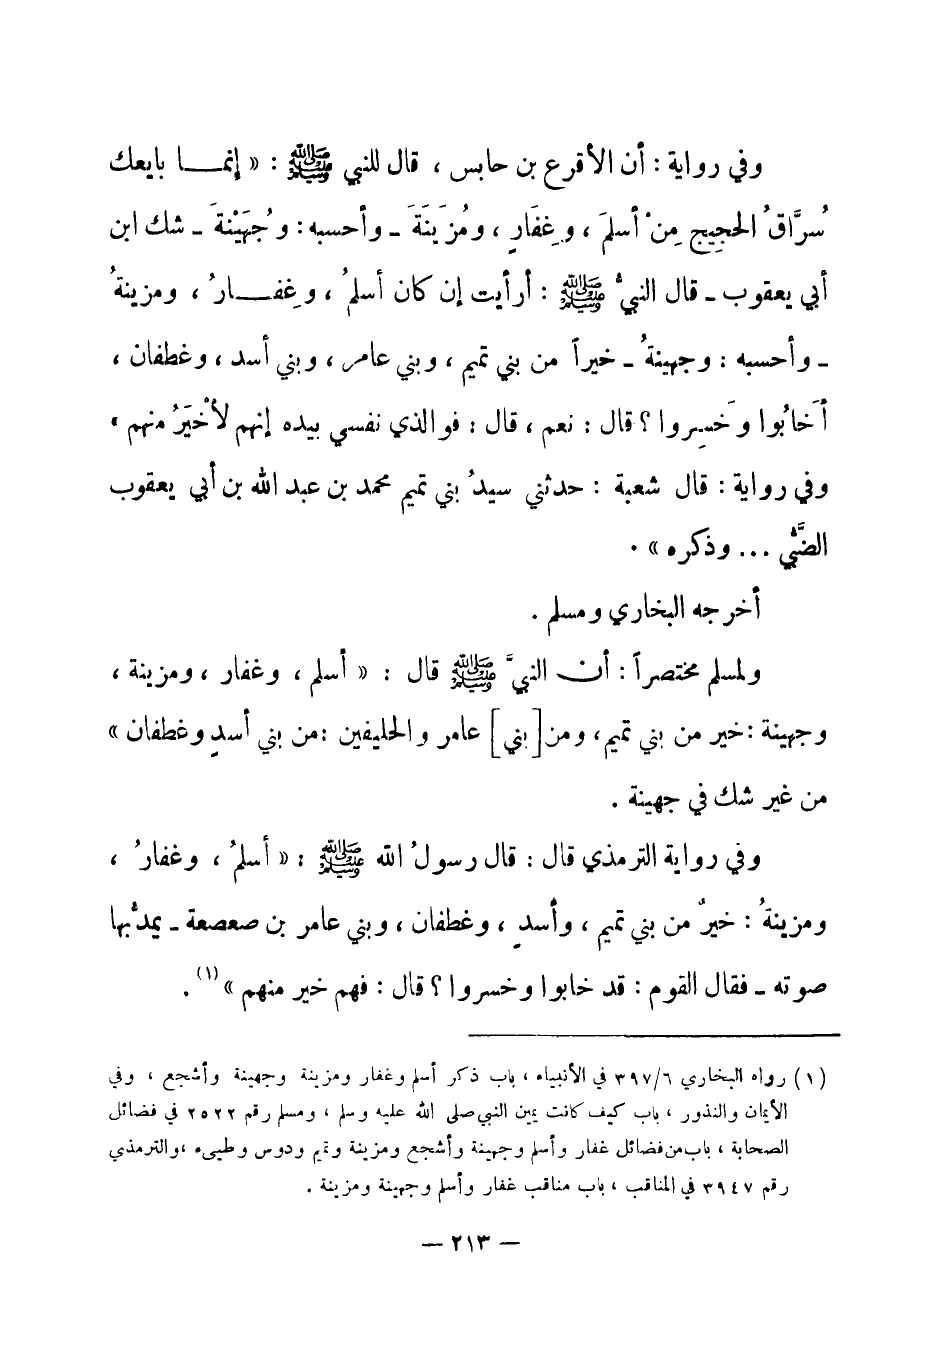 وفي رواية : أن الأقرع بن حابس ، قال للنبي ﷺ : « إنمــا بايعك
سُرَّاقُ الحجيجِ مِنْ أسلمَ ، وغِفَارٍ ، ومُزَيْنَةَ ـ وأحسبه : وجُهَيْنةَ ـ شك ابن
أبي يعقوب ـ قال النبيُّ ﷺ : أرأيت إن كان أسلمُ ، وغِفــارُ ، ومزينةُ
ـ وأحسبه : وجهينةُ ـ خيراً من بني تميم ، وبني عامر ، وبني أسد ، وغطفان ،
أَخابُوا وخَسِروا ؟ قال : نعم ، قال : فوالذي نفسي بيده إنهم لأَخْيَرُ منهم .
وفي رواية : قال شعبة : حدثني سيدُ بني تميم محمد بن عبد الله بن أبي يعقوب
الضَّبُّي ... وذكره » .
أخرجه البخاري ومسلم .
ولمسلم مختصراً : أن النبيَّ ﷺ قال : « أسلم ، وغفار ، ومزينة ،
وجهينة : خير من بني تميم ، ومن [بني] عامر والحليفين : من بني أسدٍ وغطفان »
من غير شك في جهينة .
وفي رواية الترمذي قال : قال رسولُ الله ﷺ : « أسلمُ ، وغفارُ ،
ومزينةُ : خيرٌ من بني تميم ، وأسدٍ ، وغطفان ، وبني عامر بن صعصعة ـ يمدُّ بها
صوته ـ فقال القوم : قد خابوا وخسروا ؟ قال : فهم خير منهم » (١) .
(١) رواه البخاري ٣٩٧/٦ في الأنبياء ، باب ذكر أسلم وغفار ومزينة وجهينة وأشجع ، وفي
الأيمان والنذور ، باب كيف كانت يمين النبي صلى الله عليه وسلم ، ومسلم رقم ٢٥٢٢ في فضائل
الصحابة ، باب من فضائل غفار وأسلم وجهينة وأشجع ومزينة وتميم ودوس وطيىء ، والترمذي
رقم ٣٩٤٧ في المناقب ، باب مناقب غفار وأسلم وجهينة ومزينة .
— ٢١٣ —